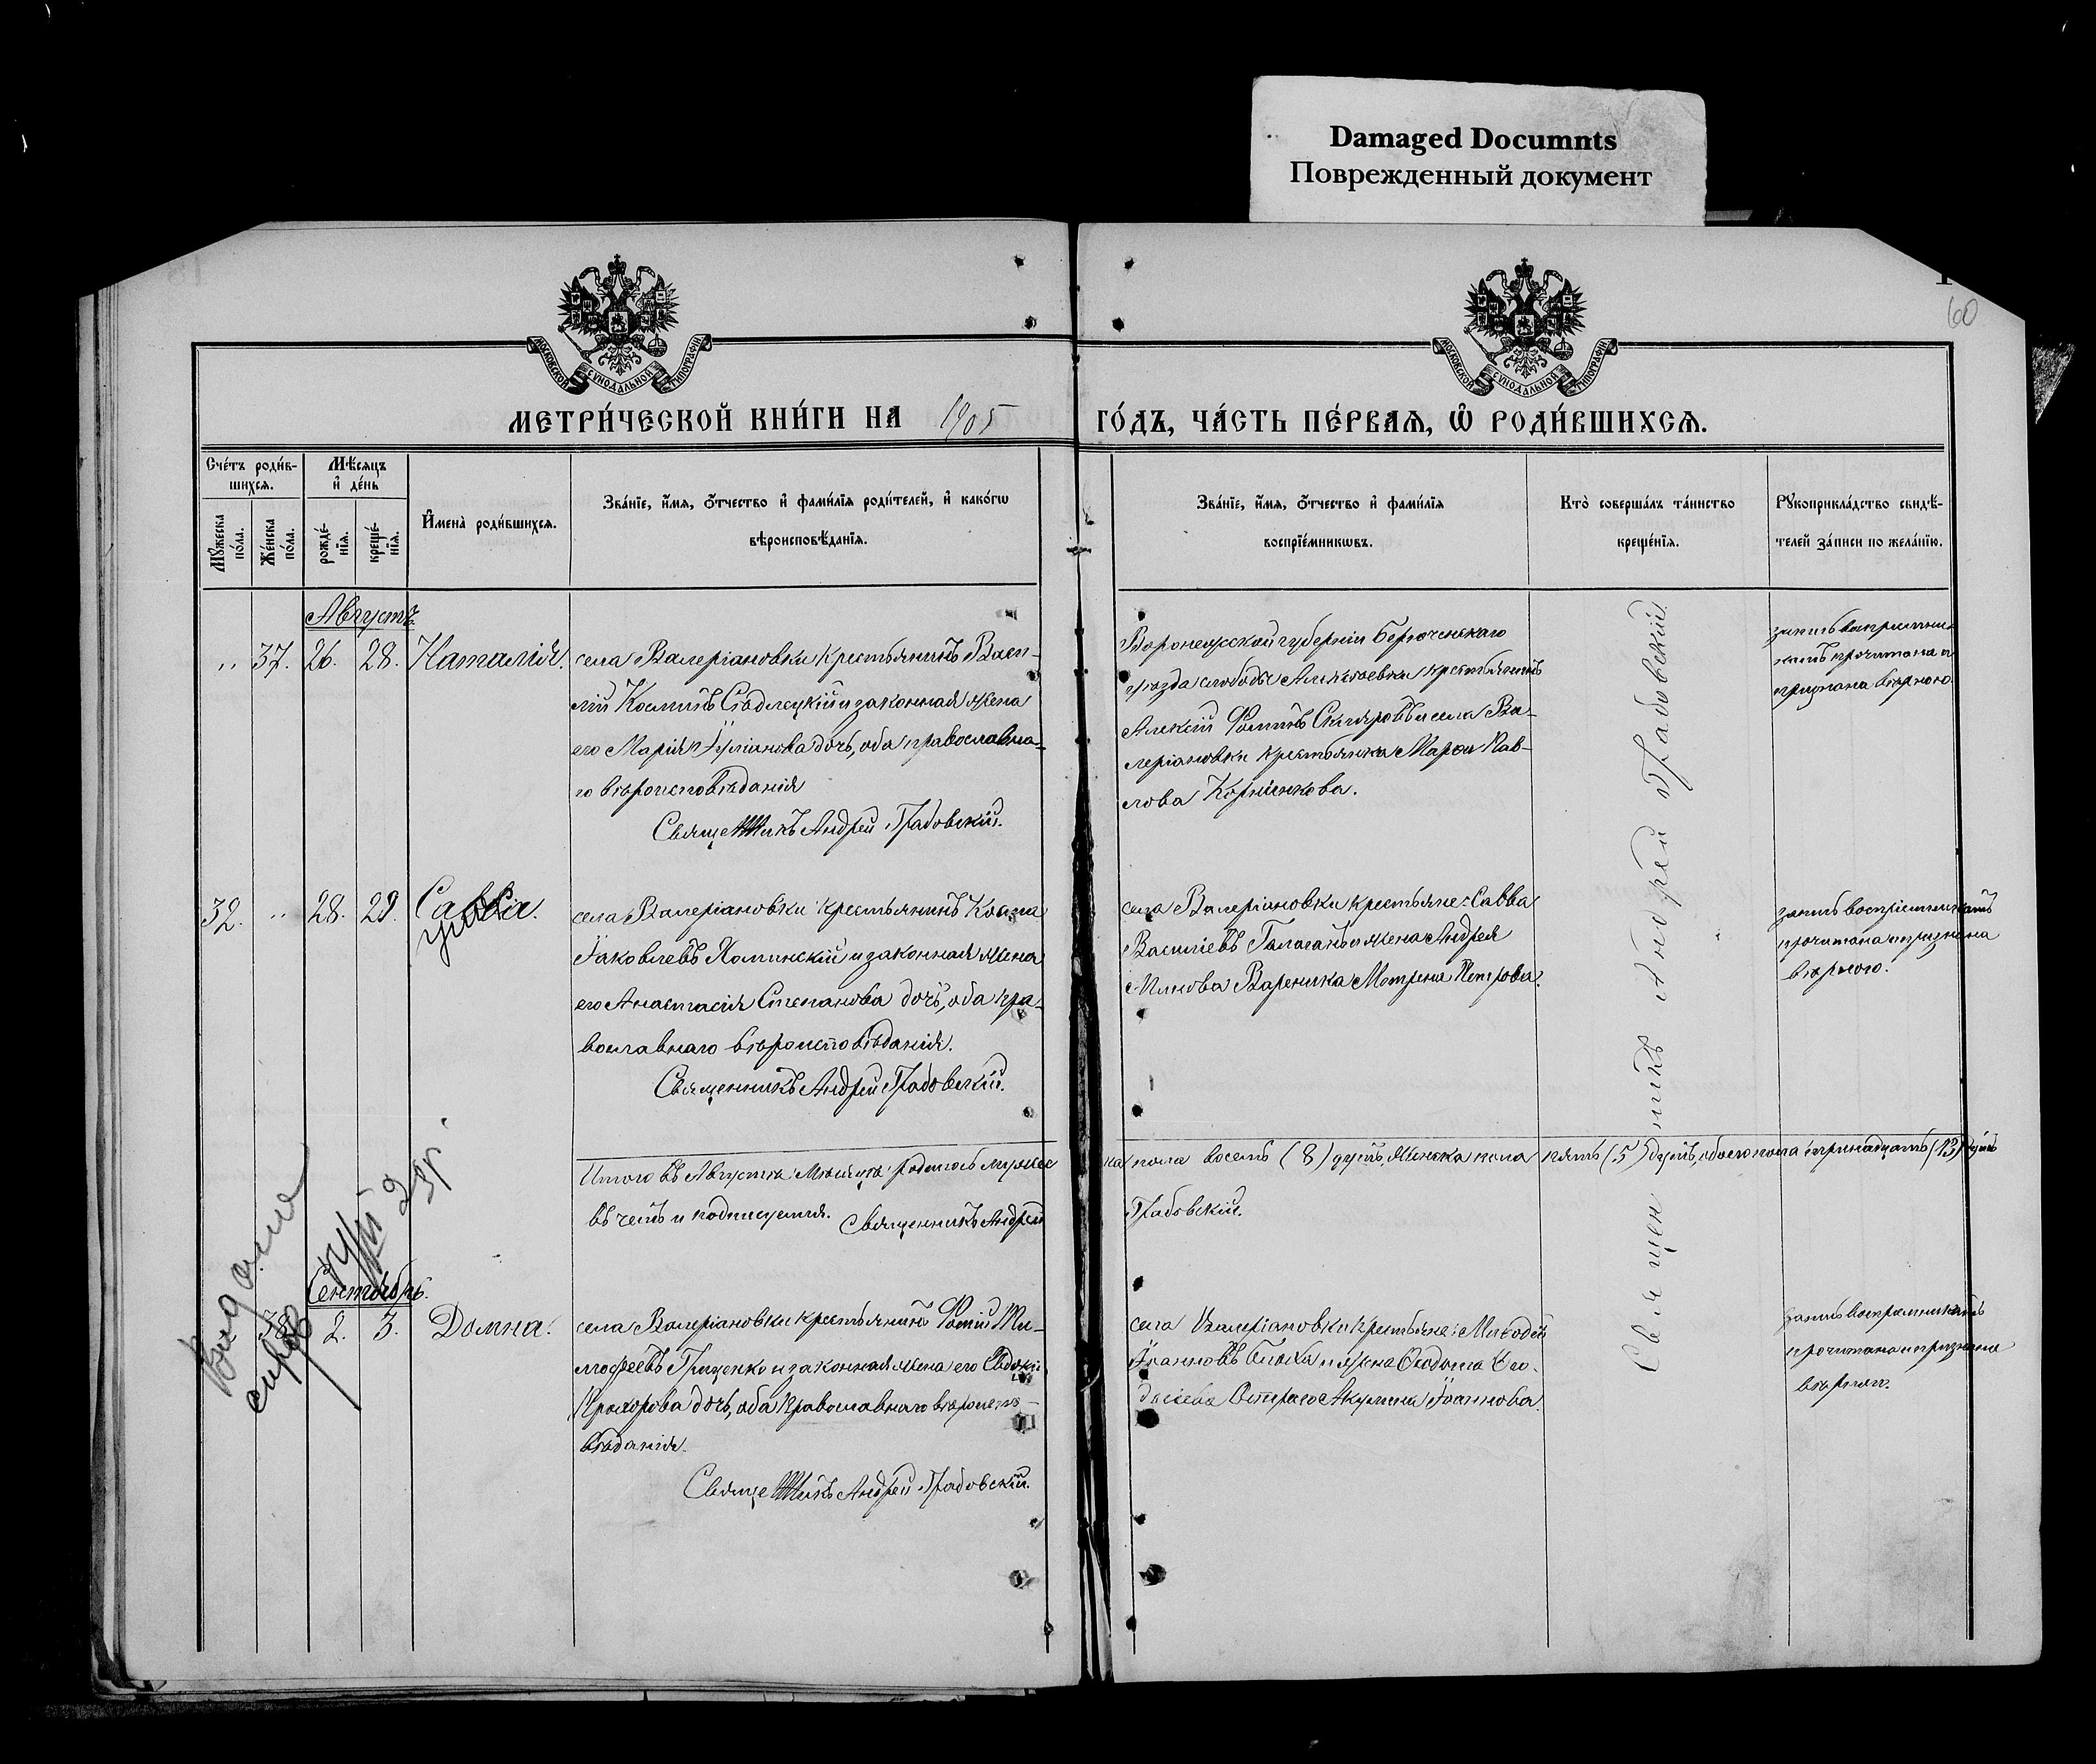 Damaged Documnts
Поврежденный документ
60
МОСКОВСКОЙ СѴНОДАЛЬНОЙ ТИПОГРАФІИ
МОСКОВСКОЙ СѴНОДАЛЬНОЙ ТИПОГРАФІИ
МЕТРИ́ЧЕСКОЙ КНИ́ГИ НА 1905 ГО́ДЪ, ЧА́СТЬ ПЕ́РВАѦ, Ѡ҆ РОДИ́ВШИХСѦ.
Сче́тъ роди́в-
шихсѧ.
Мѣ́сѧцъ
и҆ де́нь
Мꙋ́жеска
по́ла.
Же́нска
по́ла.
рожде́-
нїѧ.
креще́-
нїѧ.
И҆мена̀ роди́вшихсѧ.
Зва́нїе, и҆́мѧ, ѻ҆́тчество и҆ фами́лїѧ роди́телей, и҆ како́гѡ
вѣроисповѣ́данїѧ.
Зва́нїе, и҆́мѧ, ѻ҆́тчество и҆ фами́лїѧ
воспрїе́мникѡвъ.
Кто̀ соверша́лъ та́инство
креще́нїѧ.
Рꙋкоприкла́дство свидѣ́-
телей за́писи по жела́нїю.
Августъ
" 37. 26. 28. Наталія.
села Валеріановки крестьянинъ Васи-
лій Косминъ Сѣдлецкій и законная жена
его Марія Іуліанова дочь, оба православна-
го вѣроисповѣданія
Священникъ Андрей Грабовскій.
Воронежской губерніи Бирюченскаго
уѣзда слободы Алексѣевки крестьянинъ
Алексій Фоминъ Скляровъ и села Ва-
леріановки крестьянка Марѳа Пав-
лова Корніенкова.
запись воспріемни-
камъ прочитана и
признана вѣрною.
32. " 28. 29. Савва.
села Валеріановки крестьянинъ Косма
Іаковлевъ Хоминскій и законная жена
его Анастасія Степанова дочь, оба пра-
вославнаго вѣроисповѣданія.
Священникъ Андрей Грабовскій.
села Валеріановки крестьяне: Савва
Василіевъ Галаганъ и жена Андрея
Вареника Мотрена Петрова.
запись воспріемникамъ
прочитана и признана
вѣрною.
Итого въ Августѣ мѣсяцѣ родилось мужес-
ка пола восемь (8) душъ, женска пола пять (5) душъ, обоего пола тринадцать (13) душъ
въ чемъ и подписуемся. Священникъ Андрей
Грабовскій.
Сентябрь.
38 2. 3. Домна.
села Валеріановки крестьянинъ Фотій Ти-
моѳеевъ Грищенко и законная жена его Евдокія
Прохорова дочь, оба православнаго вѣроиспо-
вѣданія.
Священникъ Андрей Грабовскій.
села Валеріановки крестьяне: Меѳодій
Іоанновъ и жена Ѳеодота Ѳео-
Акулина Іоаннова.
запись воспріемникамъ
прочитана и признана
вѣрною.
Священникъ Андрей Грабовскій